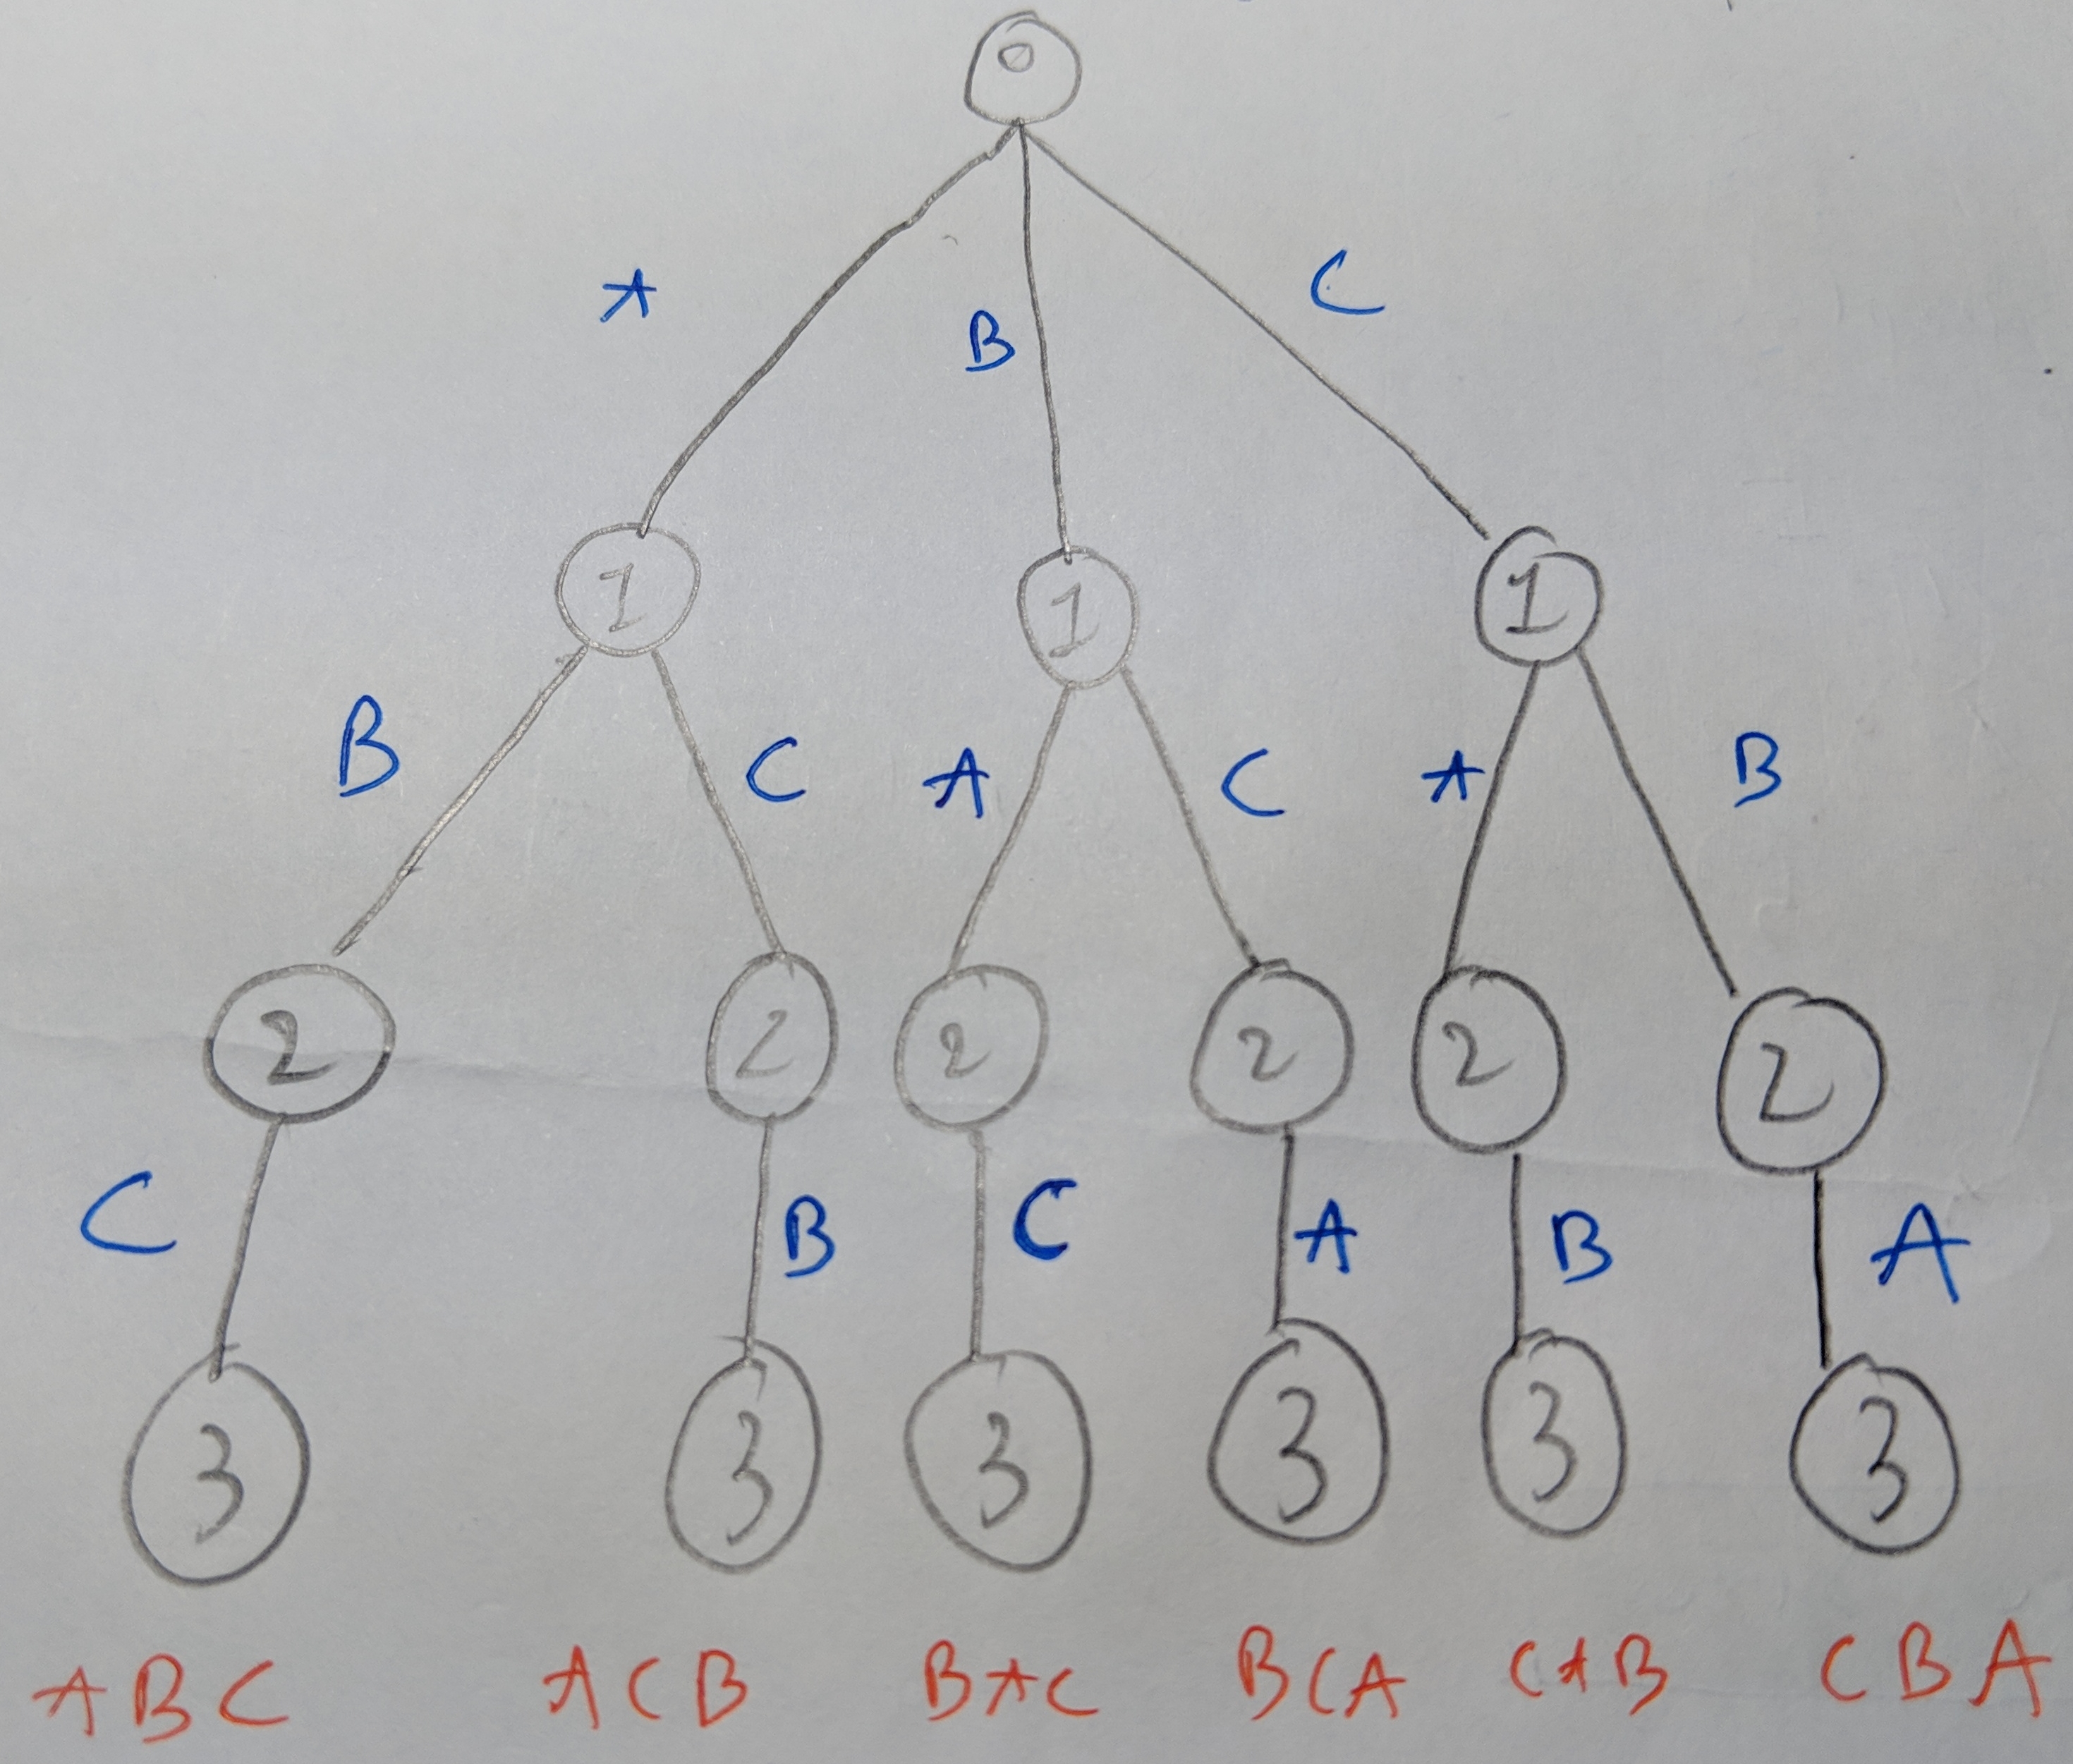 0
A B C
1 1 1
B C A C A B
2 2 2 2 2 2
C B C A B A
3 3 3 3 3 3
ABC ACB BAC BCA CAB CBA